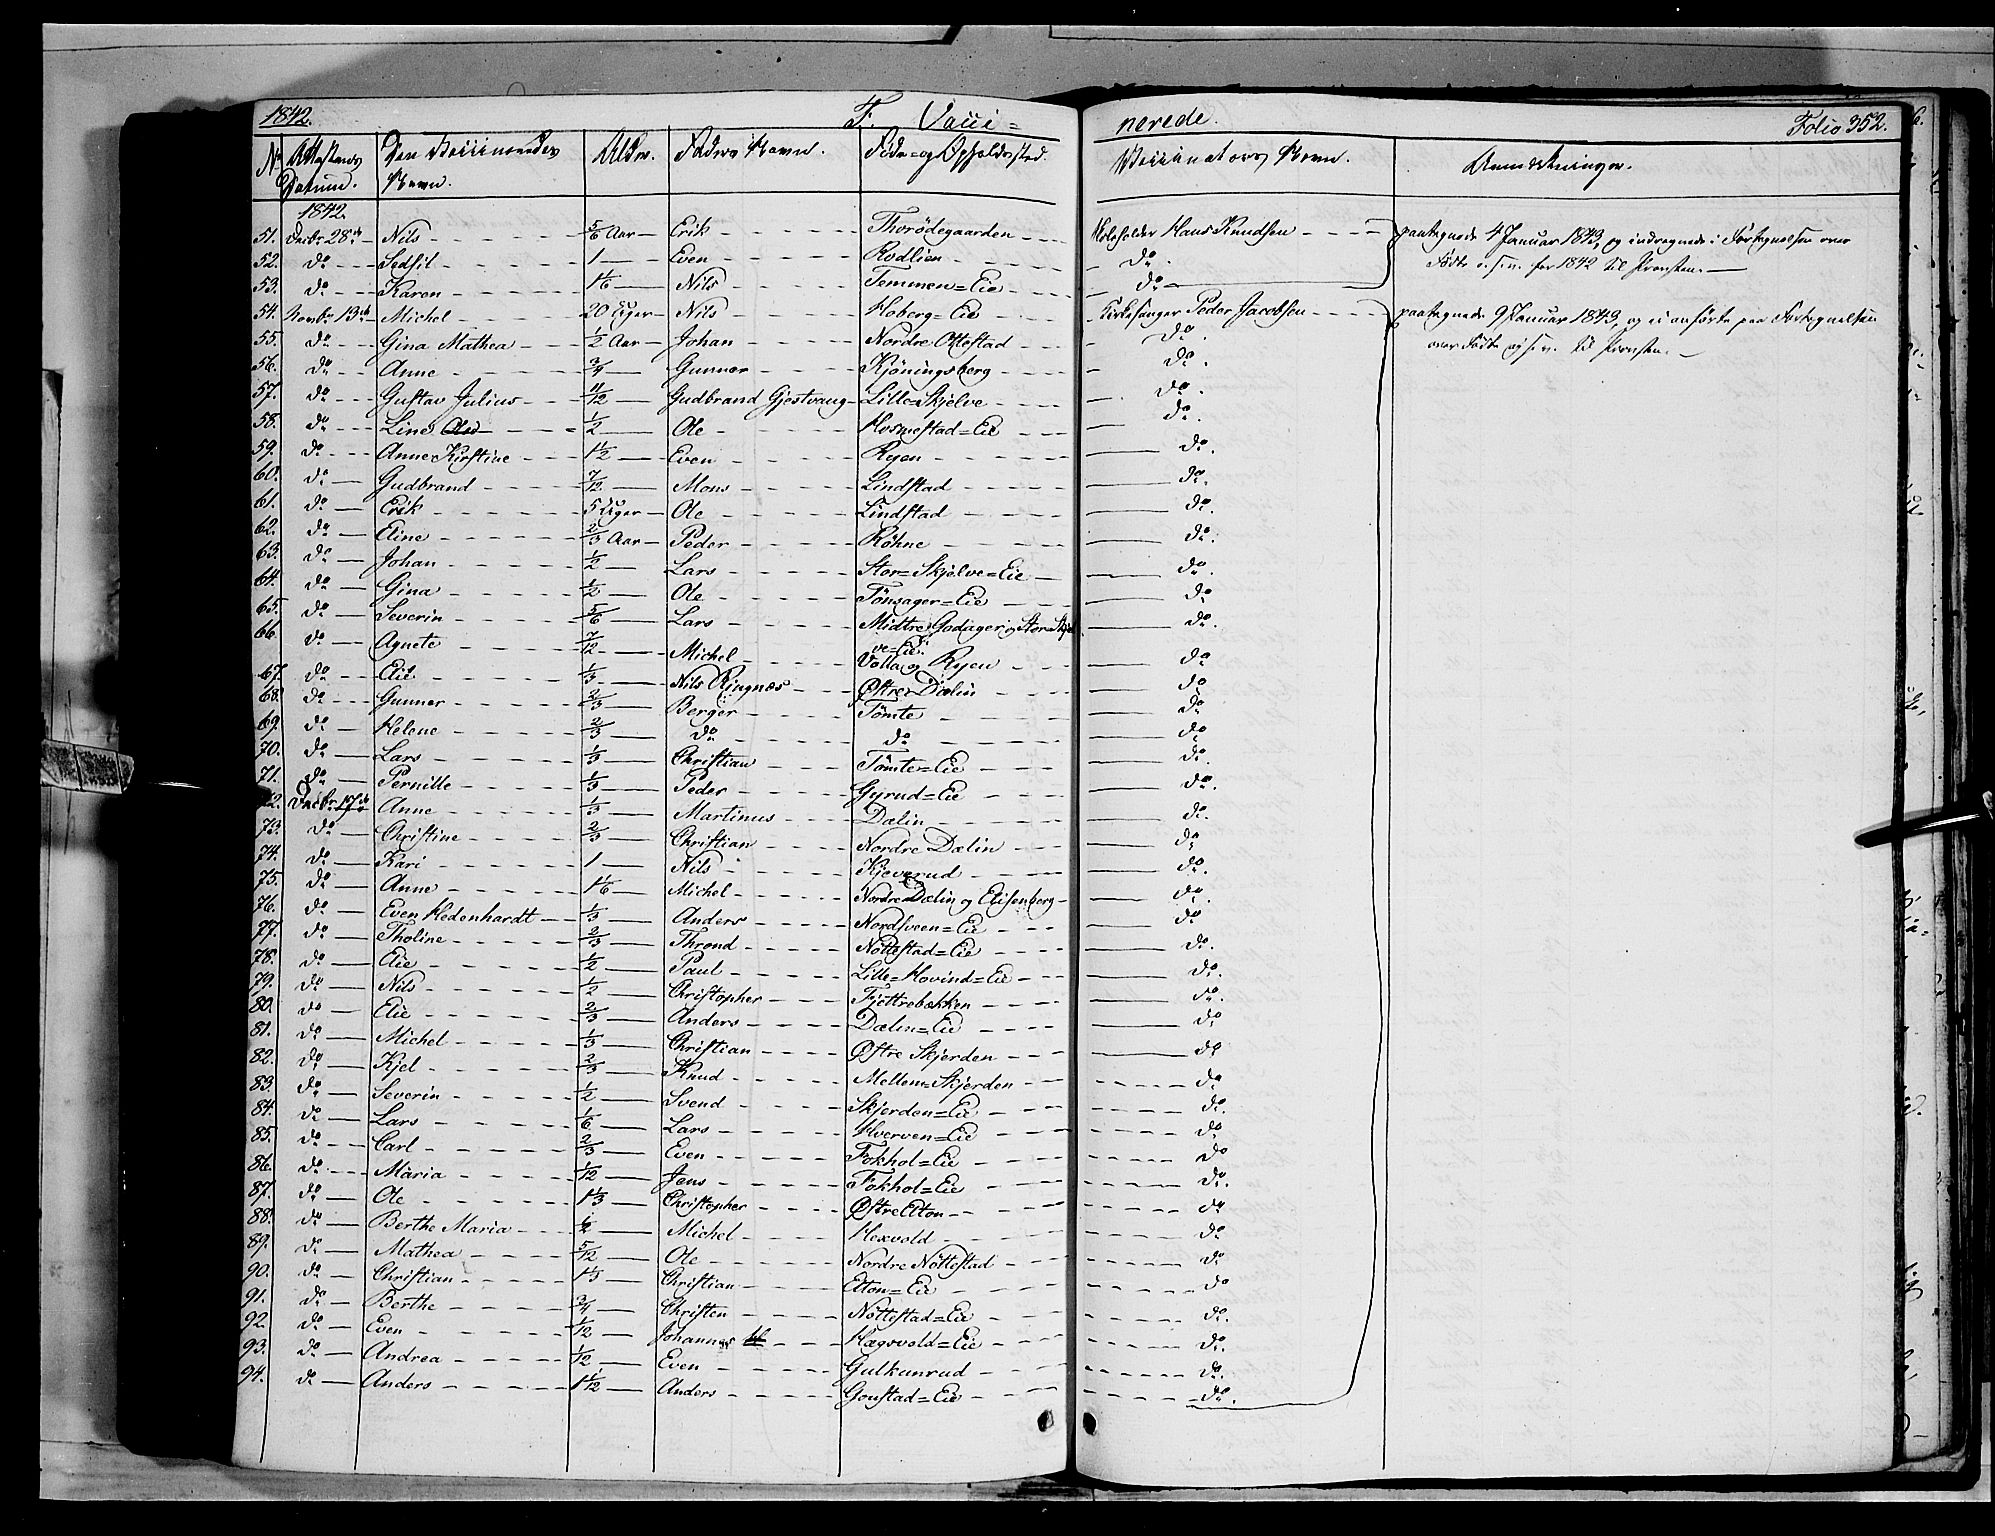 1842. F. Vacci=
nerede. Folio 352.
No Attestens Datum. Den Vaccineredes Navn. Alder. Faders Navn. Føde- og Opholdssted. Vaccinateurs Navn. Anmærkninger.
1842.
51. Decbr. 28de Nils 5/6 Aar Erik Thorödegaarden Skoleholder Hans Knudsen paategnede 4 Januar 1843, og indtegnede i Fortegnelsen over
52. do Sedsil 1 Even Rodlien do. Fødte o.s.v. for 1842 til Provsten.
53. do Karen 1 1/6 Nils Temmen=Eie do
54. Novbr. 13de Michel 20 Uger Nils Hoberg=Eie Kirkesanger Peder Jacobsen paategnede 9 Januar 1843, og ei anførte paa Fortegnelsen
55. do Gina Mathea 1/2 Aar Johan Nordre Ottestad do. over Fødte og s.v. til Provsten.
56. do Anne 3/4 Gunner Kjöningsberg do.
57. do Gustav Julius 11/12 Gudbrand Gjestvang Lille=Skjelve do.
58. do Line 1/2 Ole Hosmestad=Eie do.
59. do Anne Kirstine 1 1/2 Even Ryen do.
60. do Gudbrand 7/12 Mons Lindstad do.
61. do Erik 5 Uger Ole Lindstad do.
62. do Eline 2/3 Aar Peder Röhne do.
63. do Johan 1/2 Lars Stor=Skjelve=Eie do.
64. do Gina 1/2 Ole Tönsager=Eie do.
65. do Severin 5/6 Lars Midtre Godager og Stor Skjel
66. do Agnete 7/12 Michel ve=Eie. Volla og Ryen do
67. do Elie 1/3 Nils Ringnæs Østre Dælin do
68. do Gunner 2/3 Berger Tömte do
69. do Helene 2/3 do do do
70. do Lars 1/3 Christian Tömte=Eie do.
71. do Pernille 1/3 Peder Gyrud=Eie do.
72. Decbr. 17de Anne 1/3 Martinus Dælin do.
73. do Christine 2/3 Christian Nordre Dælin do
74. do Kari 1 Nils Kjeverud do.
75. do Anne 1 1/6 Michel Nordre Dælin og Elisenberg do.
76. do Even Hedenhardt 1/3 Anders Nordsveen=Eie do
77. do Tholine 2/3 Thrond Nöttestad=Eie do.
78. do Elie 1/2 Paul Lille=Hovind=Eie do.
79. do Nils 1/2 Christopher Fjettrebækken do.
80. do Elie 2/3 Anders Dælin=Eie do
81. do Michel 1/3 Christian Østre Skjerden do
82. do Kjel 2/3 Knud Mellem=Skjerden do
83. do Severin 1/2 Svend Skjerden=Eie do.
84. do Lars 1/6 Lars Hverven=Eie do
85. do Carl 2/3 Even Fokhol=Eie do
86. do Maria 1/12 Jens Fokhol=Eie do.
87. do Ole 1 1/3 Christopher Østre Elton do
88. do Berthe Maria 1/2 Michel Hexvold do
89. do Mathea 5/12 Ole Nordre Nöttestad do
90. do Christian 1 1/3 Christian Elton=Eie do
91. do Berthe 3/4 Christen Nöttestad=Eie do.
92. do Even 1/12 Johannes Hægsvold=Eie do.
93. do Andrea 1/12 Even Gulkunrud do.
94. do Anders 1 1/12 Anders Goustad=Eie do.